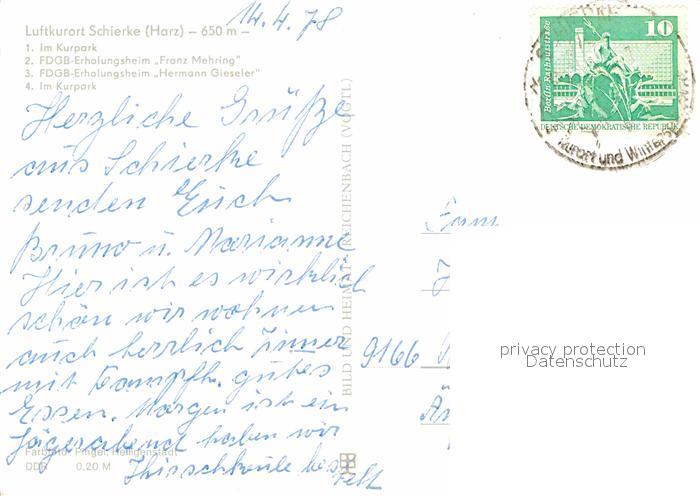 14.4.78
Luftkurort Schierke (Harz) – 650 m –
1. Im Kurpark
2. FDGB-Erholungsheim „Franz Mehring"
3. FDGB-Erholungsheim „Hermann Gieseler"
4. Im Kurpark
Herzliche Grüße
aus Schierke
senden Euch
Bruno u. Marianne
Hier ist es wirklich
schön wir wohnen
auch herrlich Zimmer
mit Kampfh. gutes
Essen. Morgen ist ein
Jägerabend haben wir
Hirschkeule bestellt
Farbfoto: Pingel, Heiligenstadt
DDR 0.20 M
BILD UND HEIMAT REICHENBACH (VOGTL)
10
Berlin-Rathausstraße
DEUTSCHE DEMOKRATISCHE REPUBLIK
Kurort und Winter
Fam
9166
privacy protection
Datenschutz